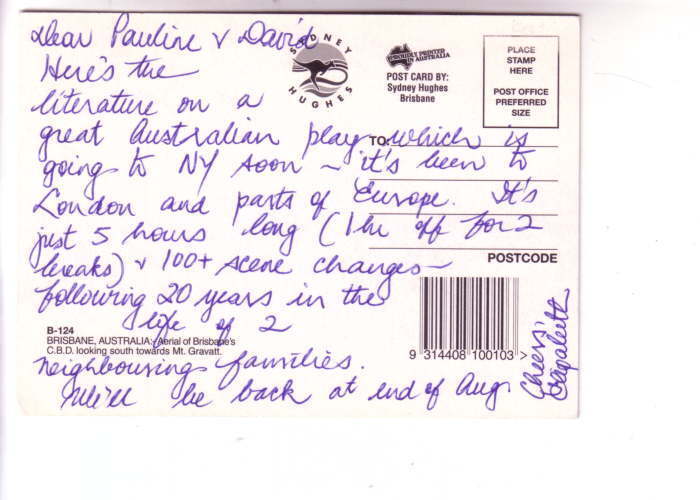 Dear Pauline & David
Here's the
literature on a
great Australian play which is
going to NY soon – it's been to
London and parts of Europe. It's
just 5 hours long (1 hr off for 2
breaks) & 100+ scene changes –
following 20 years in the
life of 2
neighbouring families.
We'll be back at end of Aug.
Cheers,
SYDNEY
HUGHES
PROUDLY PRINTED
IN AUSTRALIA
POST CARD BY:
Sydney Hughes
Brisbane
PLACE
STAMP
HERE
POST OFFICE
PREFERRED
SIZE
TO:
POSTCODE
B-124
BRISBANE, AUSTRALIA: Aerial of Brisbane's
C.B.D. looking south towards Mt. Gravatt.
9 314408 100103 >